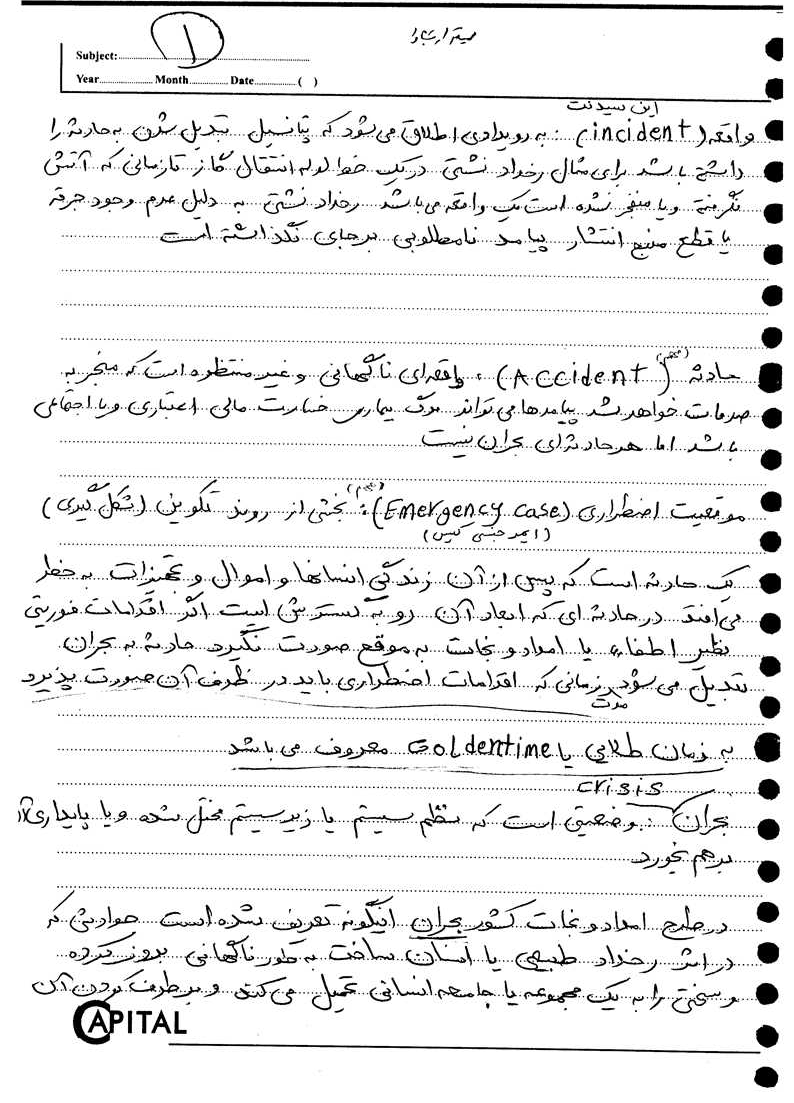 1
Subject:
Year Month Date ( )
این سیدنت
واقعه (incident) : به رویدادی اطلاق می شود که پتانسیل تبدیل شدن به حادثه را
داشته باشد برای مثال رخداد نشتی در یک خط لوله انتقال گاز تا زمانی که آتش
نگرفته و یا منفجر نشده است یک واقعه می باشد رخداد نشتی به دلیل عدم وجود جرقه
یا قطع منبع انتشار پیامد نامطلوبی برجای نگذاشته است
(مهم)
حادثه (Accident) : واقعه ای ناگهانی و غیر منتظره است که منجر به
صدمات خواهد شد پیامدها می تواند مرگ بیماری خسارت مالی اعتباری و یا اجتماعی
باشد اما هر حادثه ای بحران نیست
(مهم)
موقعیت اضطراری (Emergency case) : بخشی از روند تکوین (شکل گیری)
(ایمرجنسی کیس)
یک حادثه است که پس از آن زندگی انسانها و اموال و تجهیزات به خطر
می افتد در حادثه ای که ابعاد آن رو به گسترش است اگر اقدامات فوریتی
نظیر اطفاء یا امداد و نجات به موقع صورت نگیرد حادثه به بحران
تبدیل می شود زمانی که اقدامات اضطراری باید در ظرف آن صورت پذیرد
مدت
به زمان طلایی یا Goldentime معروف می باشد
crisis
بحران : وضعیتی است که نظم سیستم یا زیر سیستم مختل شده و یا پایداری آن
برهم بخورد
در طرح امداد و نجات کشور بحران اینگونه تعریف شده است حوادثی که
در اثر رخداد طبیعی یا انسان ساخت به طور ناگهانی بروز کرده
و سختی را به یک مجموعه یا جامعه انسانی تحمیل می کند و برطرف کردن آن
CAPITAL